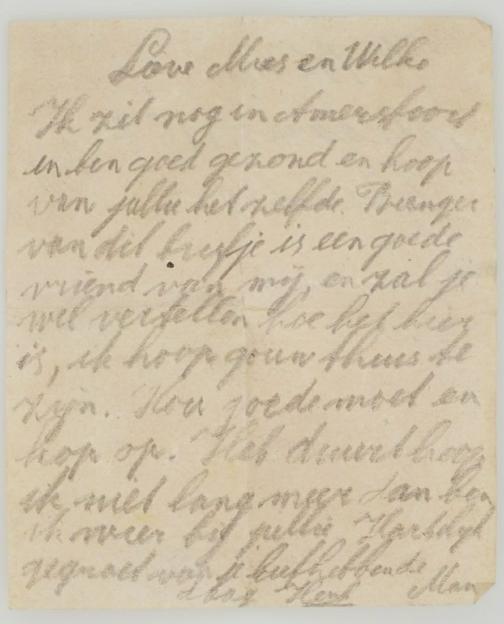 Lieve Mies en Wilko
Ik zit nog in Amersfoort
en ben goed gezond en hoop
van jullie het zelfde. Brenger
van dit briefje is een goede
vriend van mij, en zal je
wel vertellen hoe het hier
is, ik hoop gouw thuis te
zijn. Hou goede moet en
kop op. Het duurt hoop
ik niet lang meer dan ben
ik weer bij jullie Hartelijk
gegroet van je liefhebbende
daag Henk Man